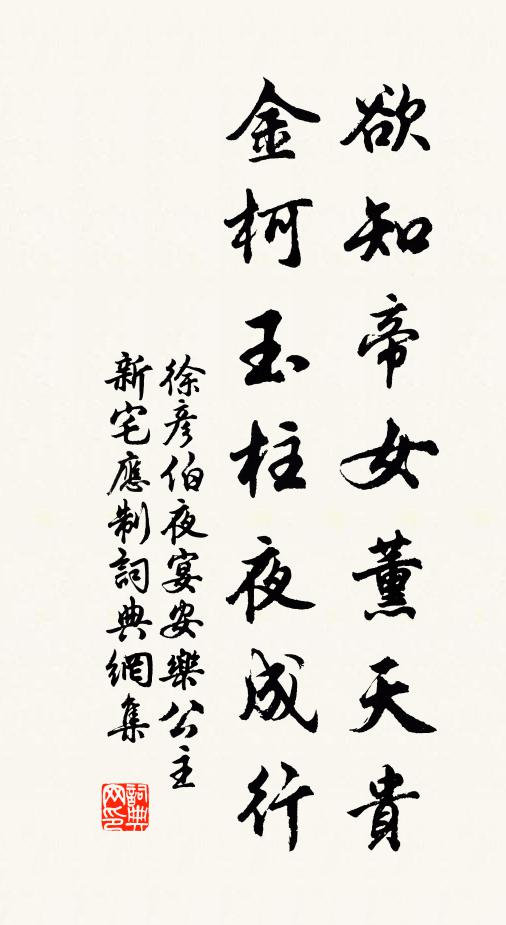 欲知帝女薰天貴
金柯玉柱夜成行
徐彥伯夜宴安樂公主
新宅應制詞典網集
詞典
网印